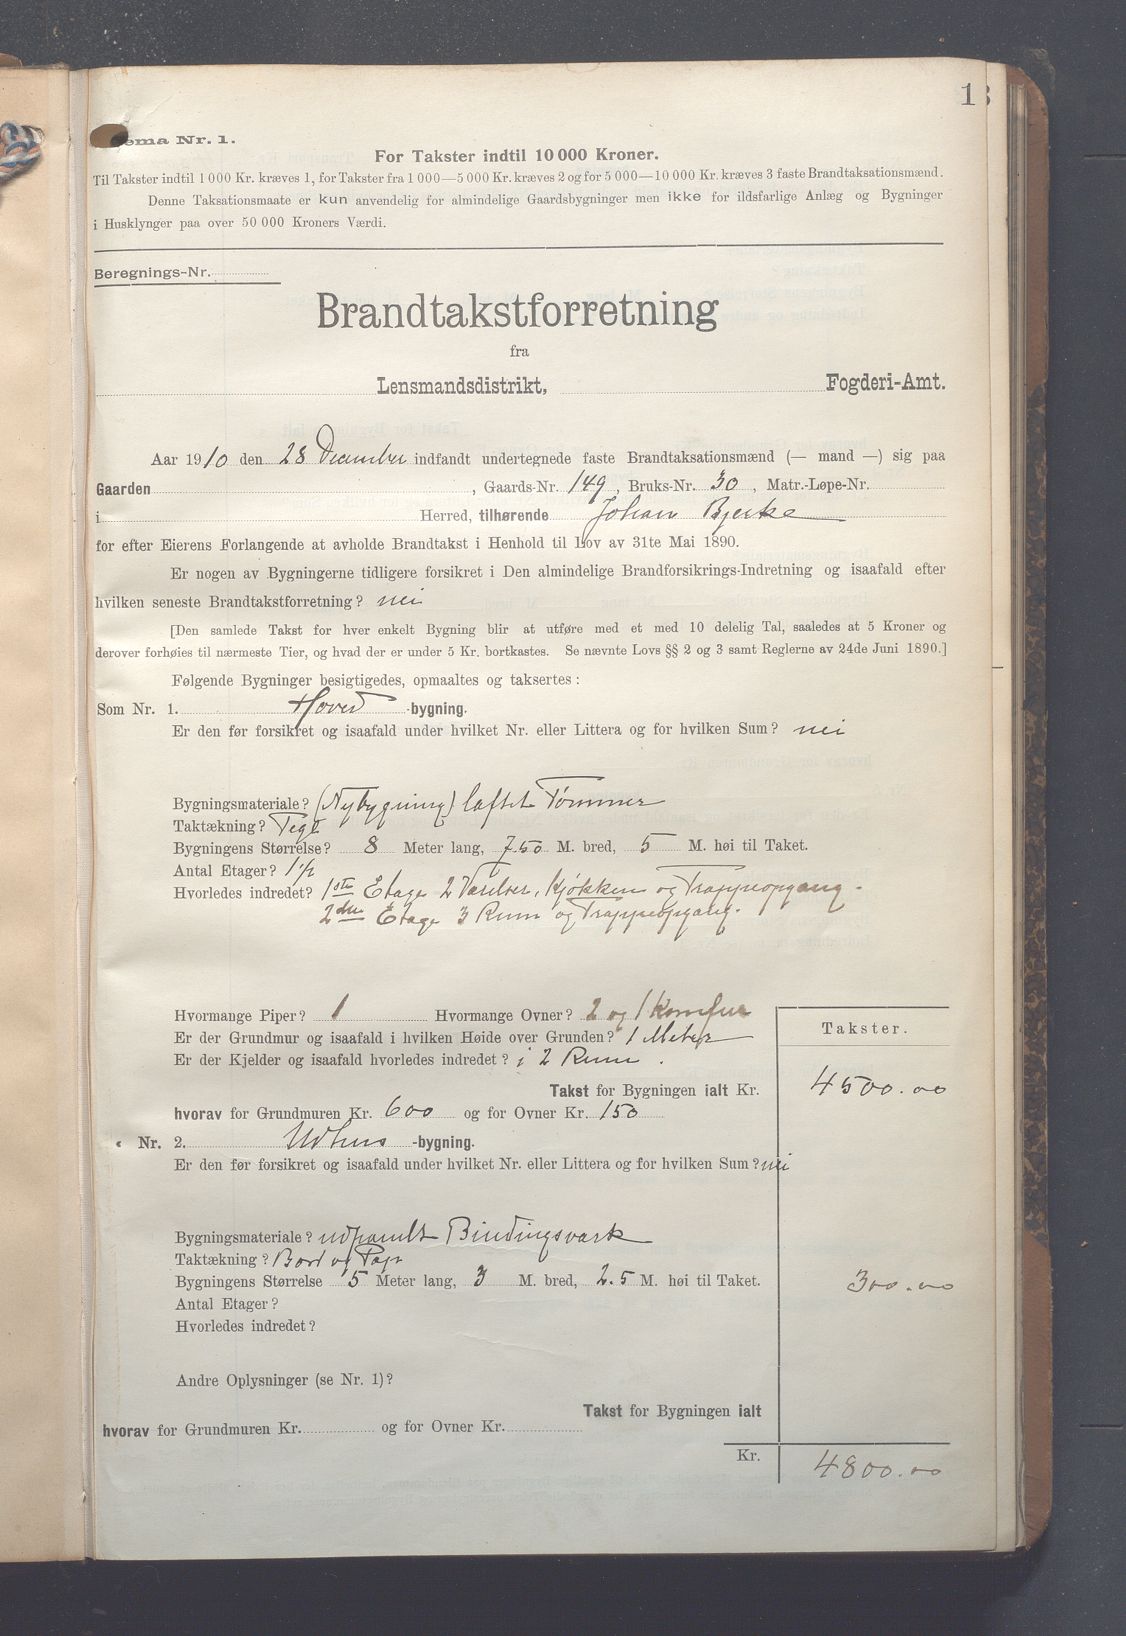 1
ema Nr. 1.
For Takster indtil 10 000 Kroner.
Til Takster indtil 1 000 Kr. kræves 1, for Takster fra 1 000—5 000 Kr. kræves 2 og for 5 000—10 000 Kr. kræves 3 faste Brandtaksationsmænd.
Denne Taksationsmaate er kun anvendelig for almindelige Gaardsbygninger men ikke for ildsfarlige Anlæg og Bygninger
i Husklynger paa over 50 000 Kroners Værdi.
Beregnings-Nr.
Brandtakstforretning
fra
Lensmandsdistrikt, Fogderi-Amt.
Aar 1910 den 28 December indfandt undertegnede faste Brandtaksationsmænd (— mand —) sig paa
Gaarden , Gaards-Nr. 149 , Bruks-Nr. 30 , Matr.-Løpe-Nr.
i Herred, tilhørende Johan Bjerke
for efter Eierens Forlangende at avholde Brandtakst i Henhold til Lov av 31te Mai 1890.
Er nogen av Bygningerne tidligere forsikret i Den almindelige Brandforsikrings-Indretning og isaafald efter
hvilken seneste Brandtakstforretning? nei
[Den samlede Takst for hver enkelt Bygning blir at utføre med et med 10 delelig Tal, saaledes at 5 Kroner og
derover forhøies til nærmeste Tier, og hvad der er under 5 Kr. bortkastes. Se nævnte Lovs §§ 2 og 3 samt Reglerne av 24de Juni 1890.]
Følgende Bygninger besigtigedes, opmaaltes og taksertes :
Som Nr. 1. Hoved -bygning.
Er den før forsikret og isaafald under hvilket Nr. eller Littera og for hvilken Sum? nei
Bygningsmateriale? (Nybygning) laftet Tømmer
Taktækning? Tegl
Bygningens Størrelse? 8 Meter lang, 7.50 M. bred, 5 M. høi til Taket.
Antal Etager? 1 1/2
Hvorledes indredet? 1ste Etage 2 Værelser, Kjøkken og Trappeopgang.
2den Etage 3 Rum og Trappeopgang.
Hvormange Piper? 1 Hvormange Ovner? 2 og 1 Komfur
Takster.
Er der Grundmur og isaafald i hvilken Høide over Grunden? 1 Meter
Er der Kjelder og isaafald hvorledes indredet? i 2 Rum .
Takst for Bygningen ialt Kr. 4500.00
hvorav for Grundmuren Kr. 600 og for Ovner Kr. 150
« Nr. 2. Udhus -bygning.
Er den før forsikret og isaafald under hvilket Nr. eller Littera og for hvilken Sum? nei
Bygningsmateriale? udpanelt Bindingsverk
Taktækning? Bord og Pap
Bygningens Størrelse 5 Meter lang, 3 M. bred, 2.5 M. høi til Taket. 300.00
Antal Etager?
Hvorledes indredet?
Andre Oplysninger (se Nr. 1)?
Takst for Bygningen ialt
hvorav for Grundmuren Kr. og for Ovner Kr.
Kr. 4800.00